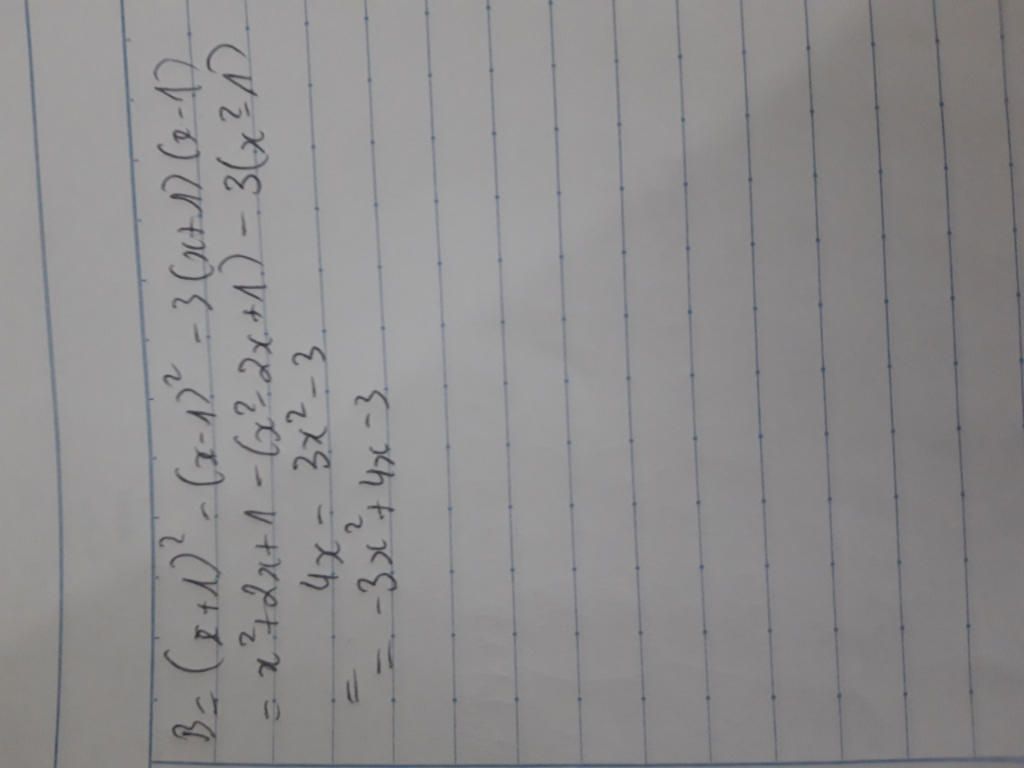 B = (x+1)² - (x-1)² - 3(x+1)(x-1)
= x²+2x+1 - (x²-2x+1) - 3(x²-1)
= 4x - 3x² - 3
= -3x² + 4x - 3